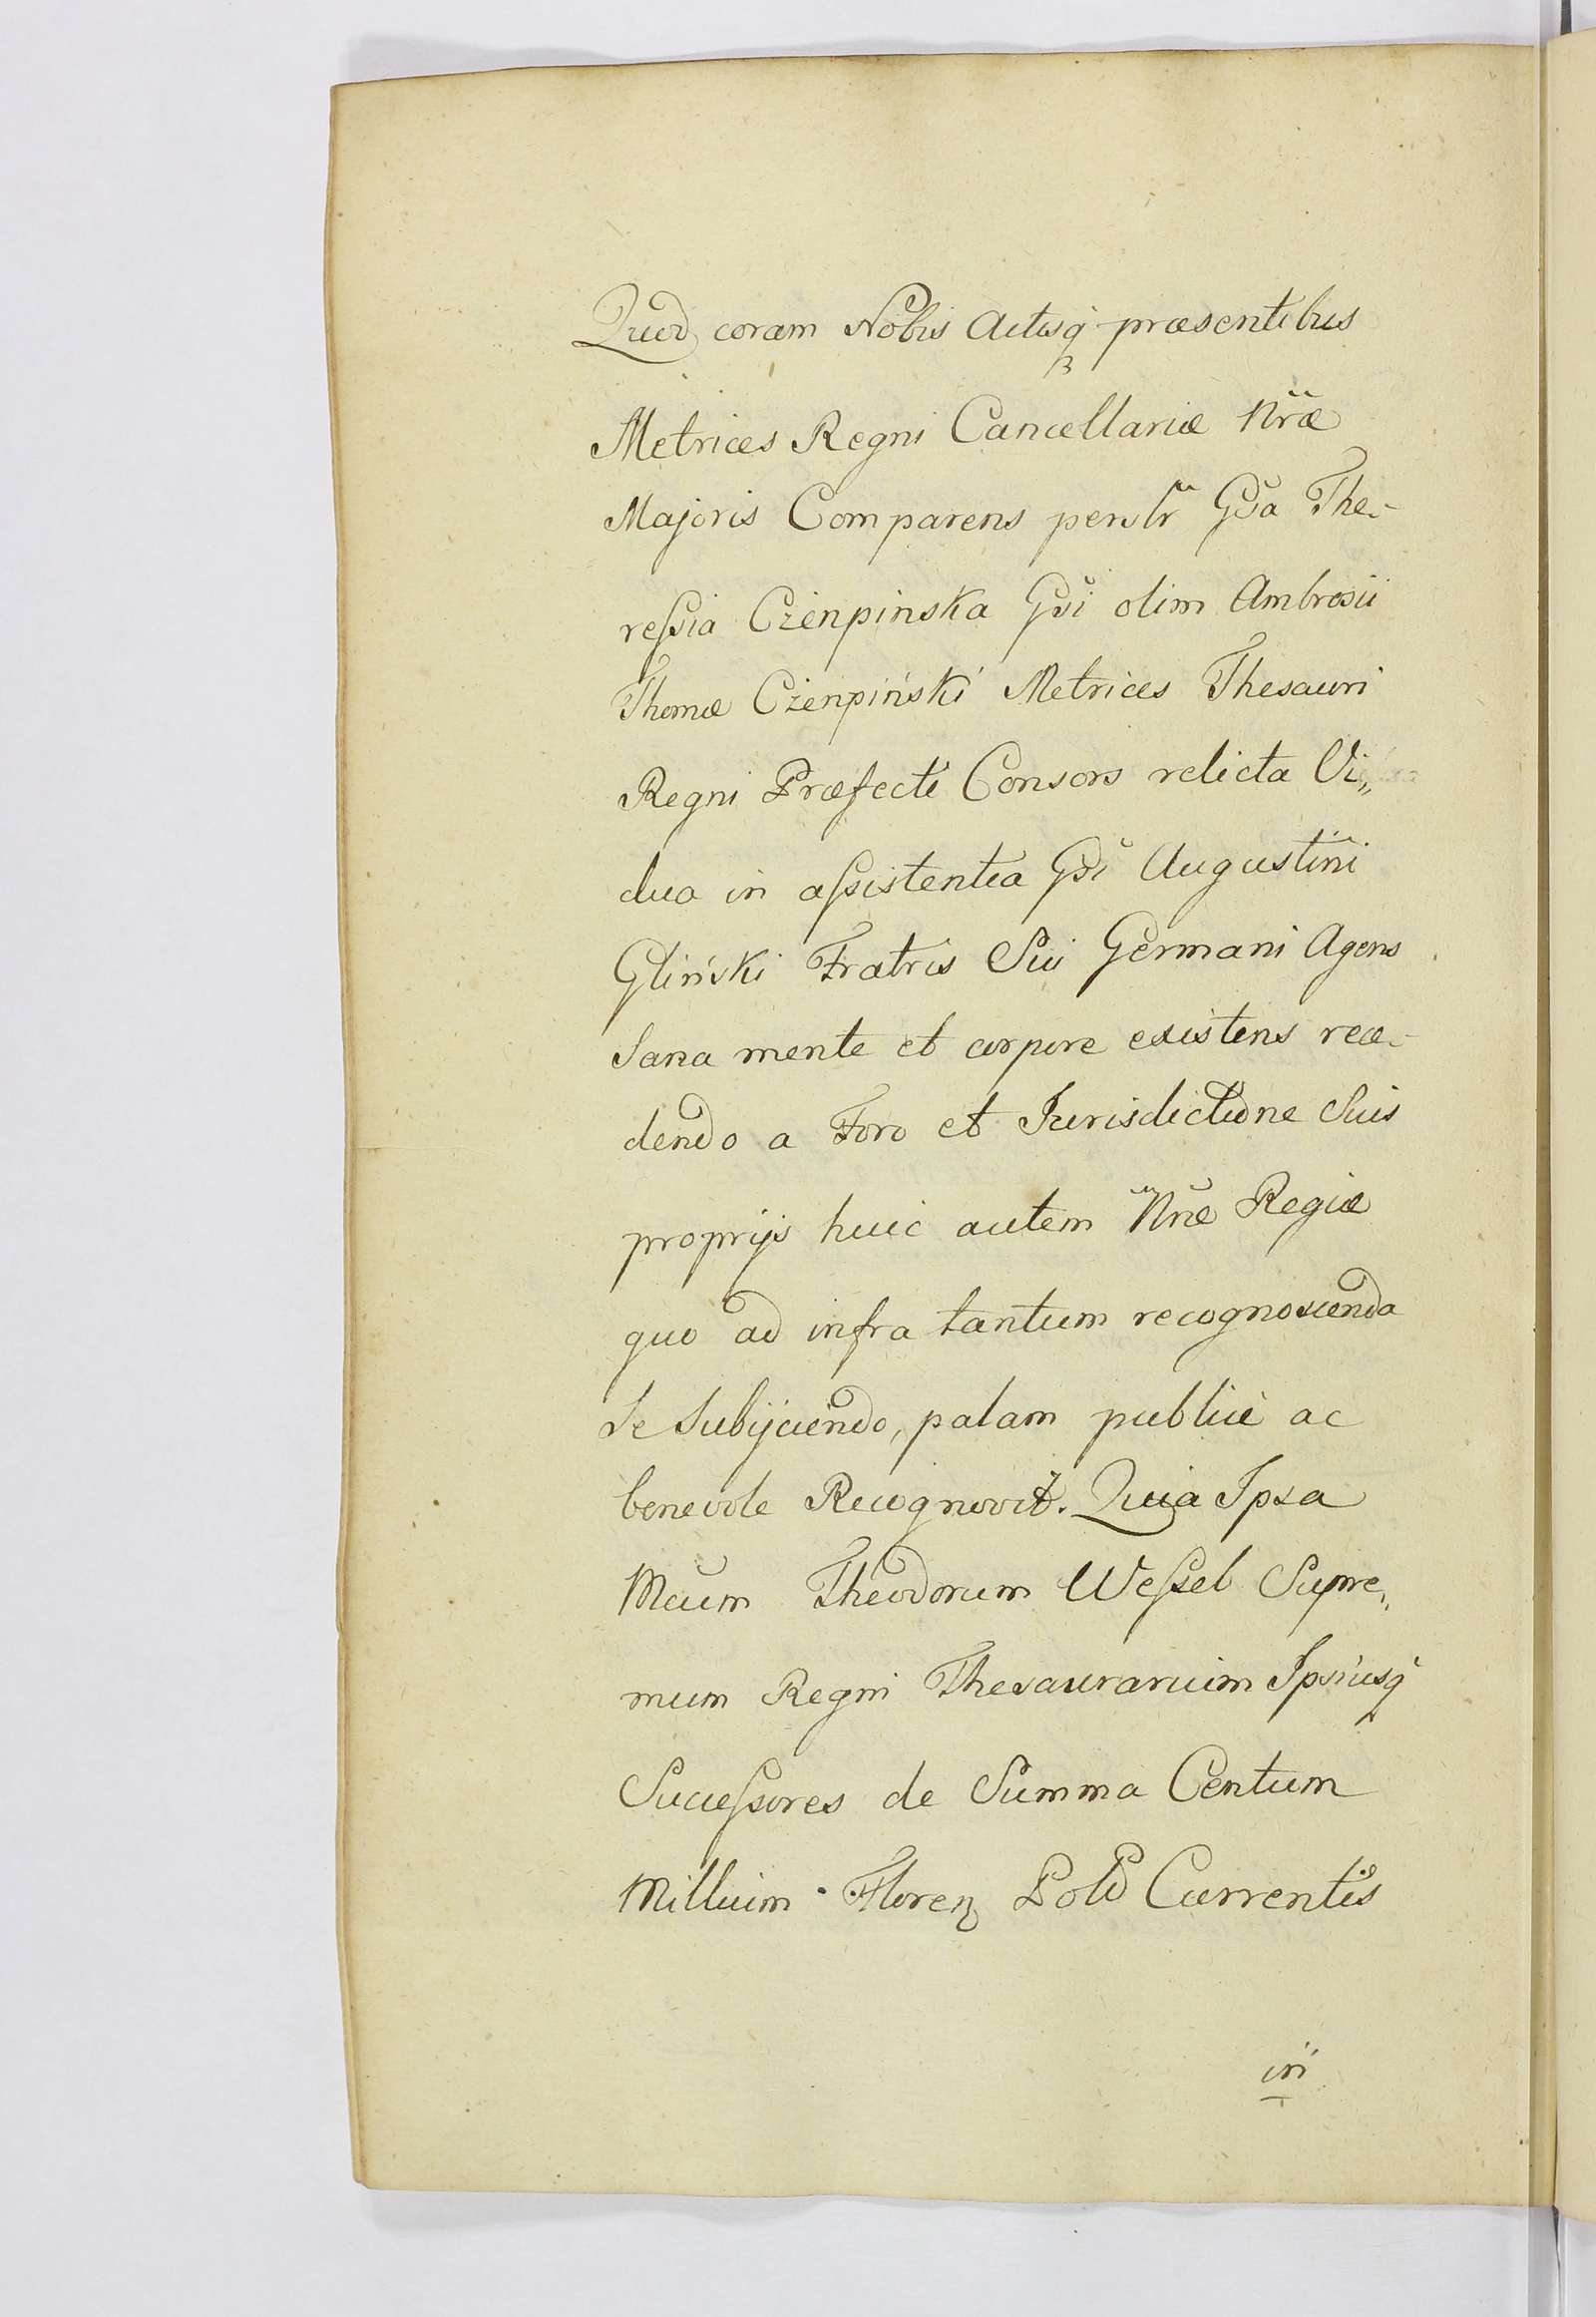 Quod coram Nobis Actisq̃ præsentibus
Metrices Regni Cancellariæ Nræ
Majoris Comparens perslr Gsa The-
reſsia Czenpinska Gsi olim Ambrosii
Thomæ Czenpiński Metrices Thesauri
Regni Præfecti Consors relicta Vi„
dua in aſsistentia Gsi Augustini
Gliński Fratris Sui Germani Agens
Sana mente et corpore existens rece-
dendo a Foro et Jurisdictione Suis
proprijs huic autem Nræ Regiæ
quo ad infra tantum recognoscenda
Se Subijciendo, palam publicè ac
benevole Recognovit. Quia Ipsa
Mcum Theodorum Weſsel Supre„
mum Regni Thesaurarium Ipsiusq̃
Succeſsores de Summa Centum
Millium Floren Pold Currentis
in